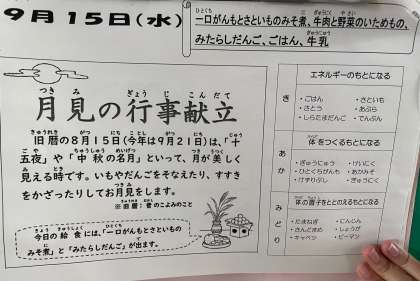 9月15日(水)
一口がんもとさといものみそ煮、牛肉と野菜のいためもの、
みたらしだんご、ごはん、牛乳
月見の行事献立
旧暦の8月15日(今年は9月21日)は、「十
五夜」や「中秋の名月」といって、月が美しく
見える時です。いもやだんごをそなえたり、すすき
をかざったりしてお月見をします。
※旧暦:昔のこよみのこと
今日の給食には、「一口がんもとさといもの
みそ煮」と「みたらしだんご」が出ます。
エネルギーのもとになる
き
・ごはん ・さといも
・さとう ・あぶら
・しらたまだんご ・でんぷん
体をつくるもとになる
あか
・ぎゅうにゅう ・けいにく
・ひとくちがんも ・あかみそ
・けずりぶし ・ぎゅうにく
体の調子をととのえるもとになる
みどり
・たまねぎ ・にんじん
・さんどまめ ・しょうが
・キャベツ ・ピーマン